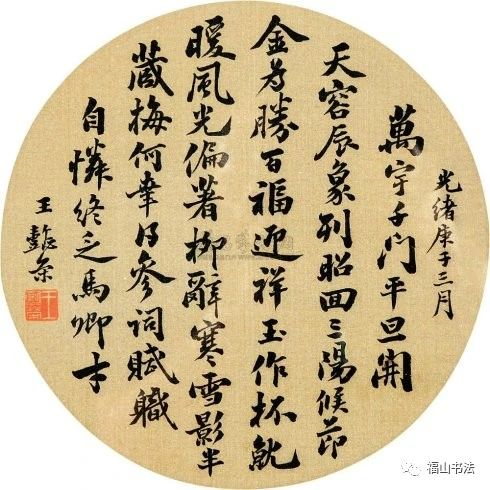 光緒庚子三月
萬宇千門平旦開
天容辰象列昭回三陽候節
金為勝百福迎祥玉作杯就
暖風光偏著柳辭寒雪影半
藏梅何幸得參詞賦職
自憐終乏馬卿才
王懿榮
福山书法